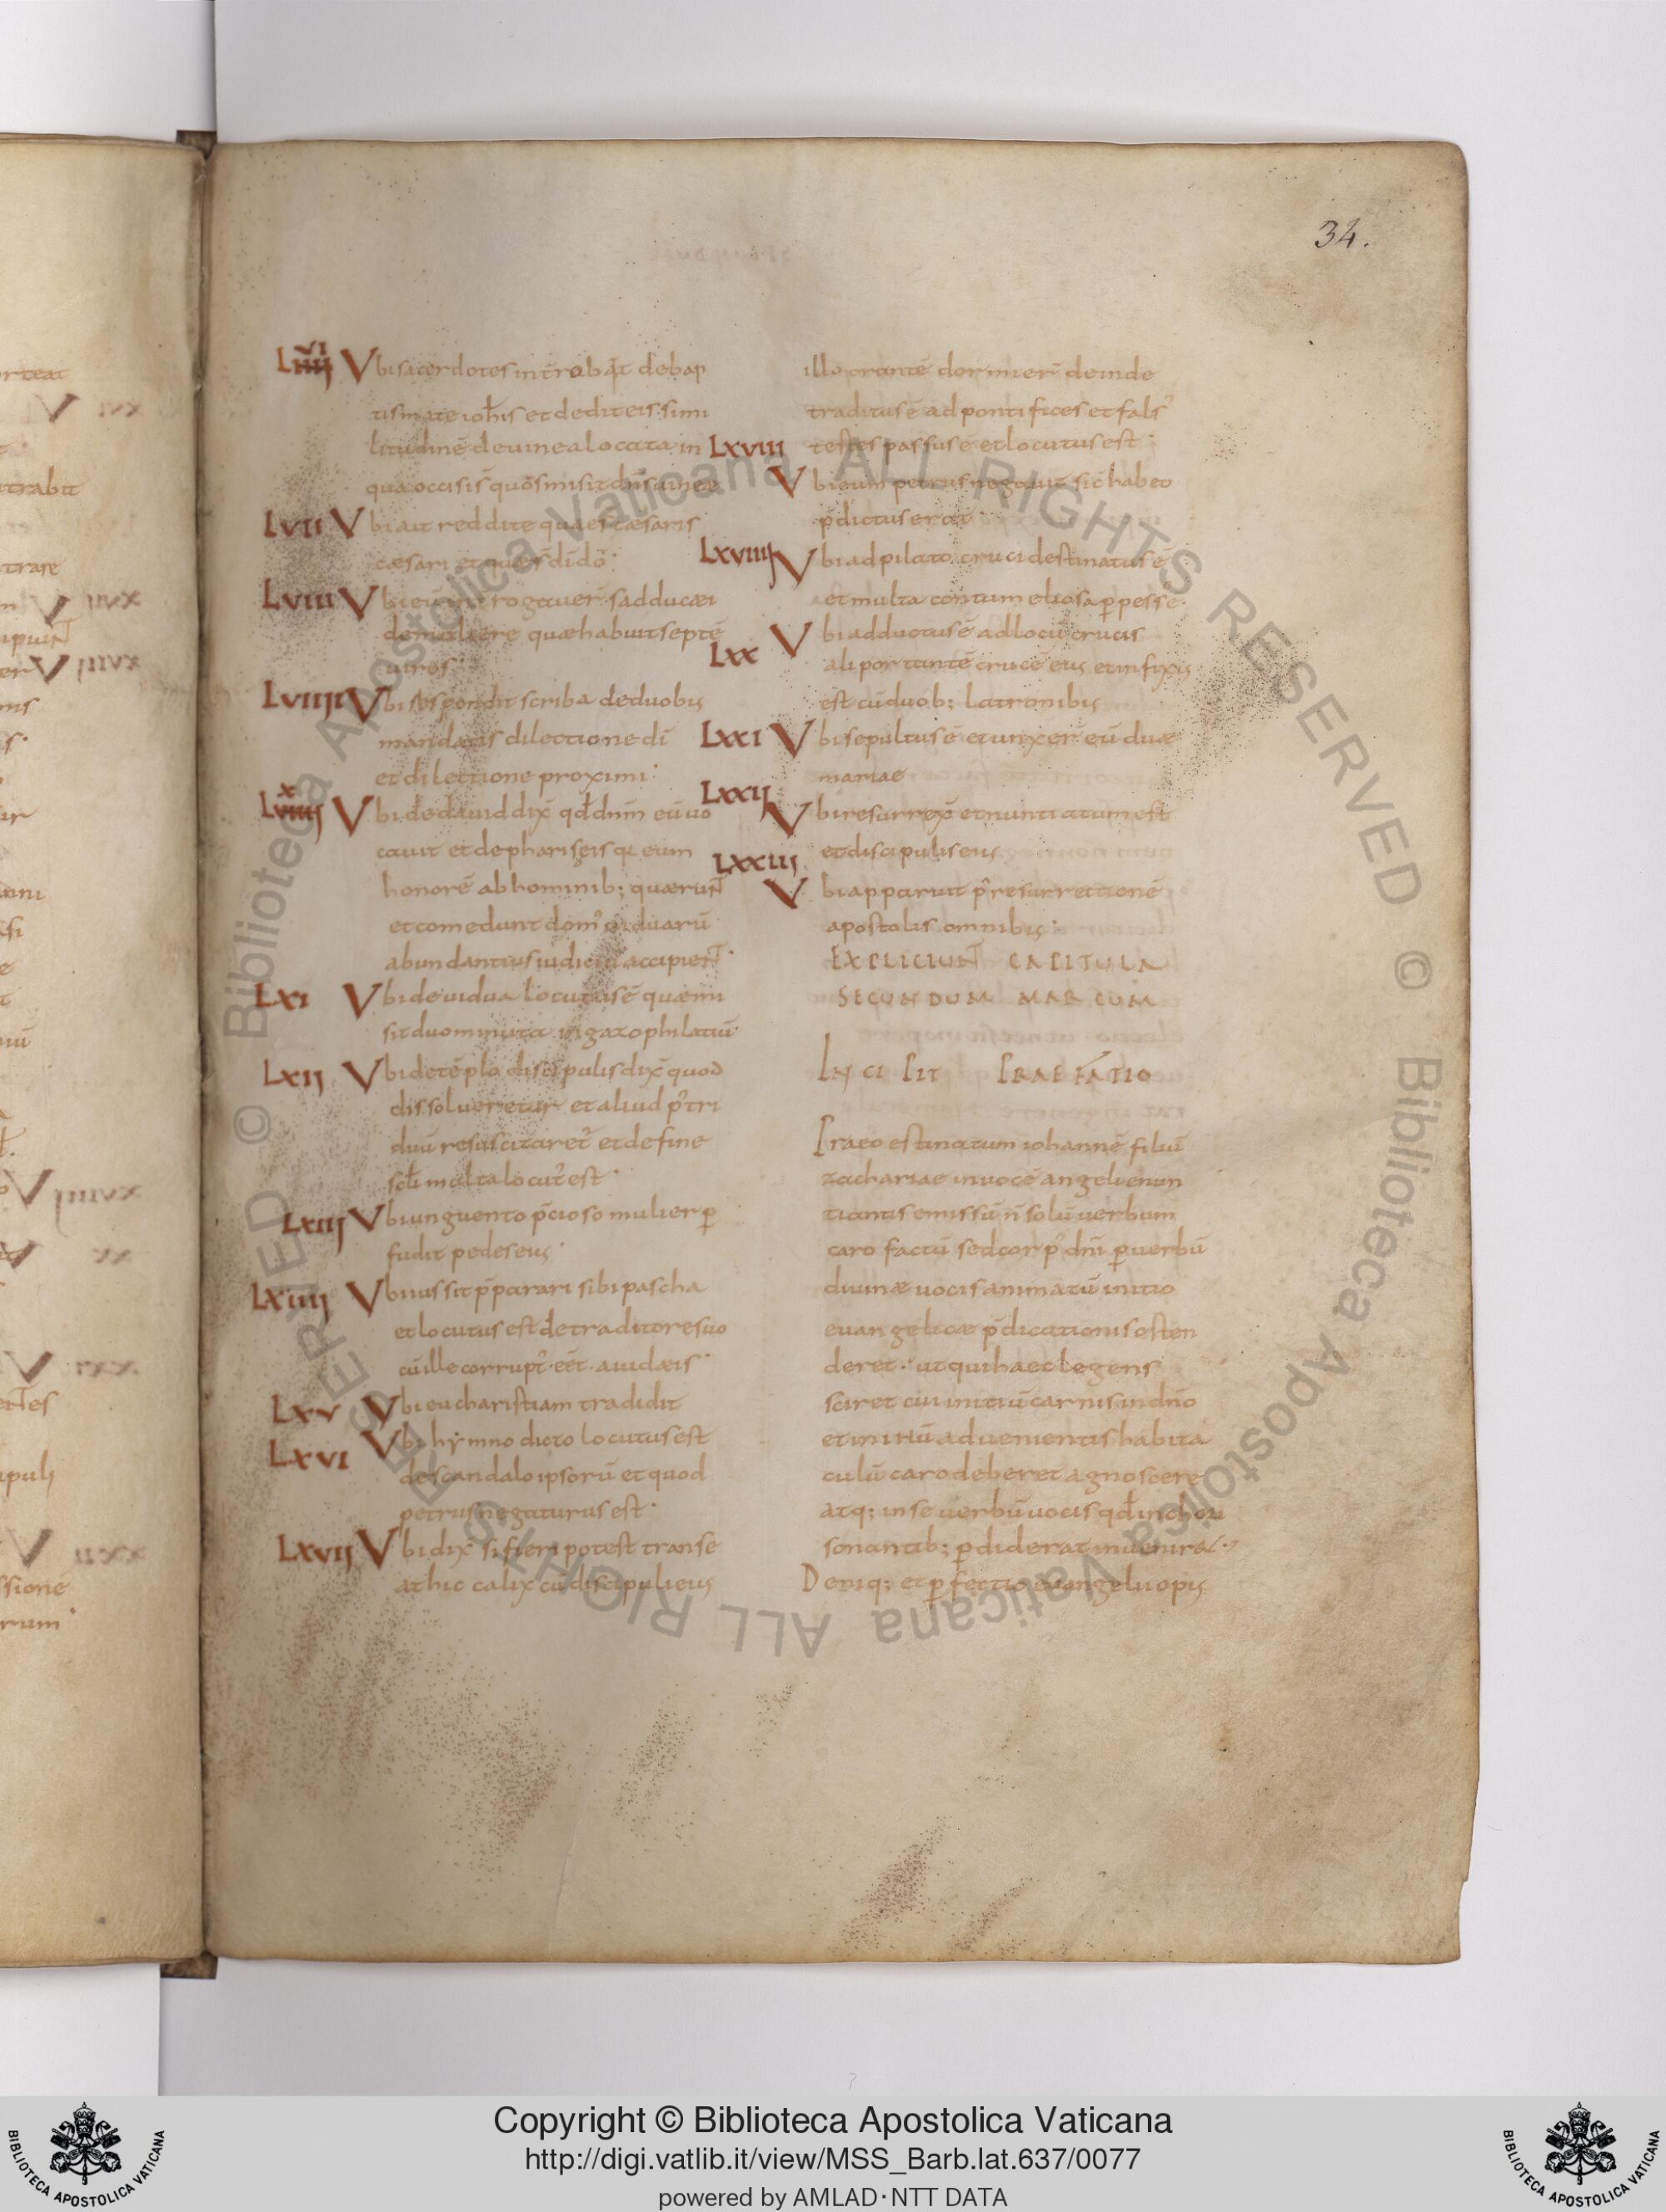 34.
LVI Vbi sacerdotes intrabat de bap
tismate ioħis et dedit eis simi
litudinē de uinea locata in
qua occisis quos misit dn̄s uineę
LVII Vbi ait reddite quae s̄ caesaris
caesari et quae s̄ dī dō·
LVIII Vbi eū int̄rogauer̄ sadducaei
de muliere quae habuit septē
uiros·
LVIIII Vbi respondit scriba de duobus
mandatis dilectione dī
et dilectione proximi·
LX Vbi de dauid dix̄ qđ dnm̄ eū uo
cauit et de phariseis qi eum
honorē ab hominib; quaerunt
et comedunt dom' uiduarū
abundantius iudiciū accipient·
LXI Vbi de uidua locutus ē quae mi
sit duo minuta in gazophilatiū·
LXII Vbi de tēplo discipulis dix̄ quod
dissolueretur et aliud p' tri
duū resuscitaret' et de fine
scłi multa locut' est·
LXIII Vbi unguento p̄cioso mulier p
fudit pedes eius·
LXIIII Vbi iussit p̄parari sibi pascha
et locutus est de traditore suo
cū ille corrupt' eēt· a iudaeis·
LXV Vbi eucharistiam tradidit
LXVI Vbi hymno dicto locutus est
de scandalo ipsorū et quod
petrus negaturus est·
LXVII Vbi dix̄ si fieri potest transe
at hic calix cū discipuli eius
illo orante dormier̄ deinde
traditus ē ad pontifices et fals'
testes passus ē et locutus est·
LXVIII Vbi eum petrus negauit sic habeo
p̄dictus erat
LXVIIII Vbi ad pilato cruci destinatus ē
et multa contumeliosa p̱pesse·
LXX Vbi adductus ē ad locū crucis
ali portante crucē eius et infixus
est cū duob; latronibus
LXXI Vbi sepultus ē et unxer̄ eū duae
mariae
LXXII Vbi resurrex̄ et nuntiatum est
et discipulis eius
LXXIII Vbi apparuit p' resurrectionē
apostolis omnibus·
EXPLICIUNT CAPITULA
SECUNDUM MARCUM
INCIPIT PRAEFATIO
Praedestinatum iohannē filiū
zachariae in uoce angeli enun
tiantis emissū n̄ solū uerbum
caro factū sed corp' dn̄i p̱ uerbū
diuinae uocis animatū initio
euangelicae p̄dicationis osten
deret·' ut qui haec legens
sciret cui initiū carnis in dn̄o
et in ihū aduenientis habita
culū caro deberet agnoscere
atq; in se uerbū uocis qđ in chon
sonantib; p̱diderat inuenire·
Deniq; et p̱fectio euangelii opus
Copyright © Biblioteca Apostolica Vaticana
http://digi.vatlib.it/view/MSS_Barb.lat.637/0077
powered by AMLAD·NTT DATA
BIBLIOTECA APOSTOLICA VATICANA
BIBLIOTECA APOSTOLICA VATICANA
© Biblioteca Apostolica Vaticana ALL RIGHTS RESERVED © Biblioteca Apostolica Vaticana ALL RIGHTS RESERVED